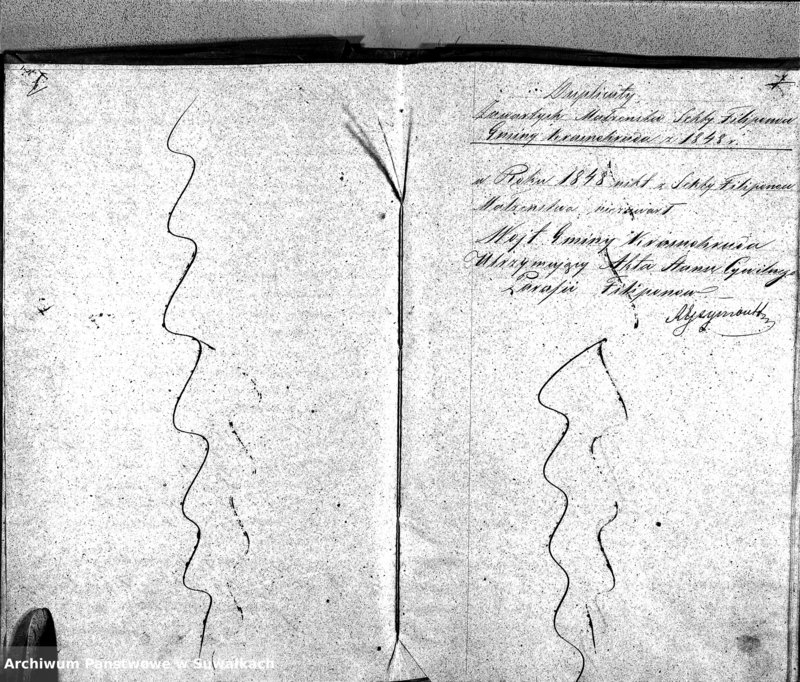 7
Duplicaty
Zawartych Malzenstw Sekty Filiponow
Gminy Kramchruda z 1848 r.
w Roku 1848 nikt z Sekty Filiponow
Malzenstwa niezawart
Wojt Gminy Kramchruda
Utrzymujący Akta Stanu Cywilnego
Parafii Filiponow
Archiwum Państwowe w Suwałkach